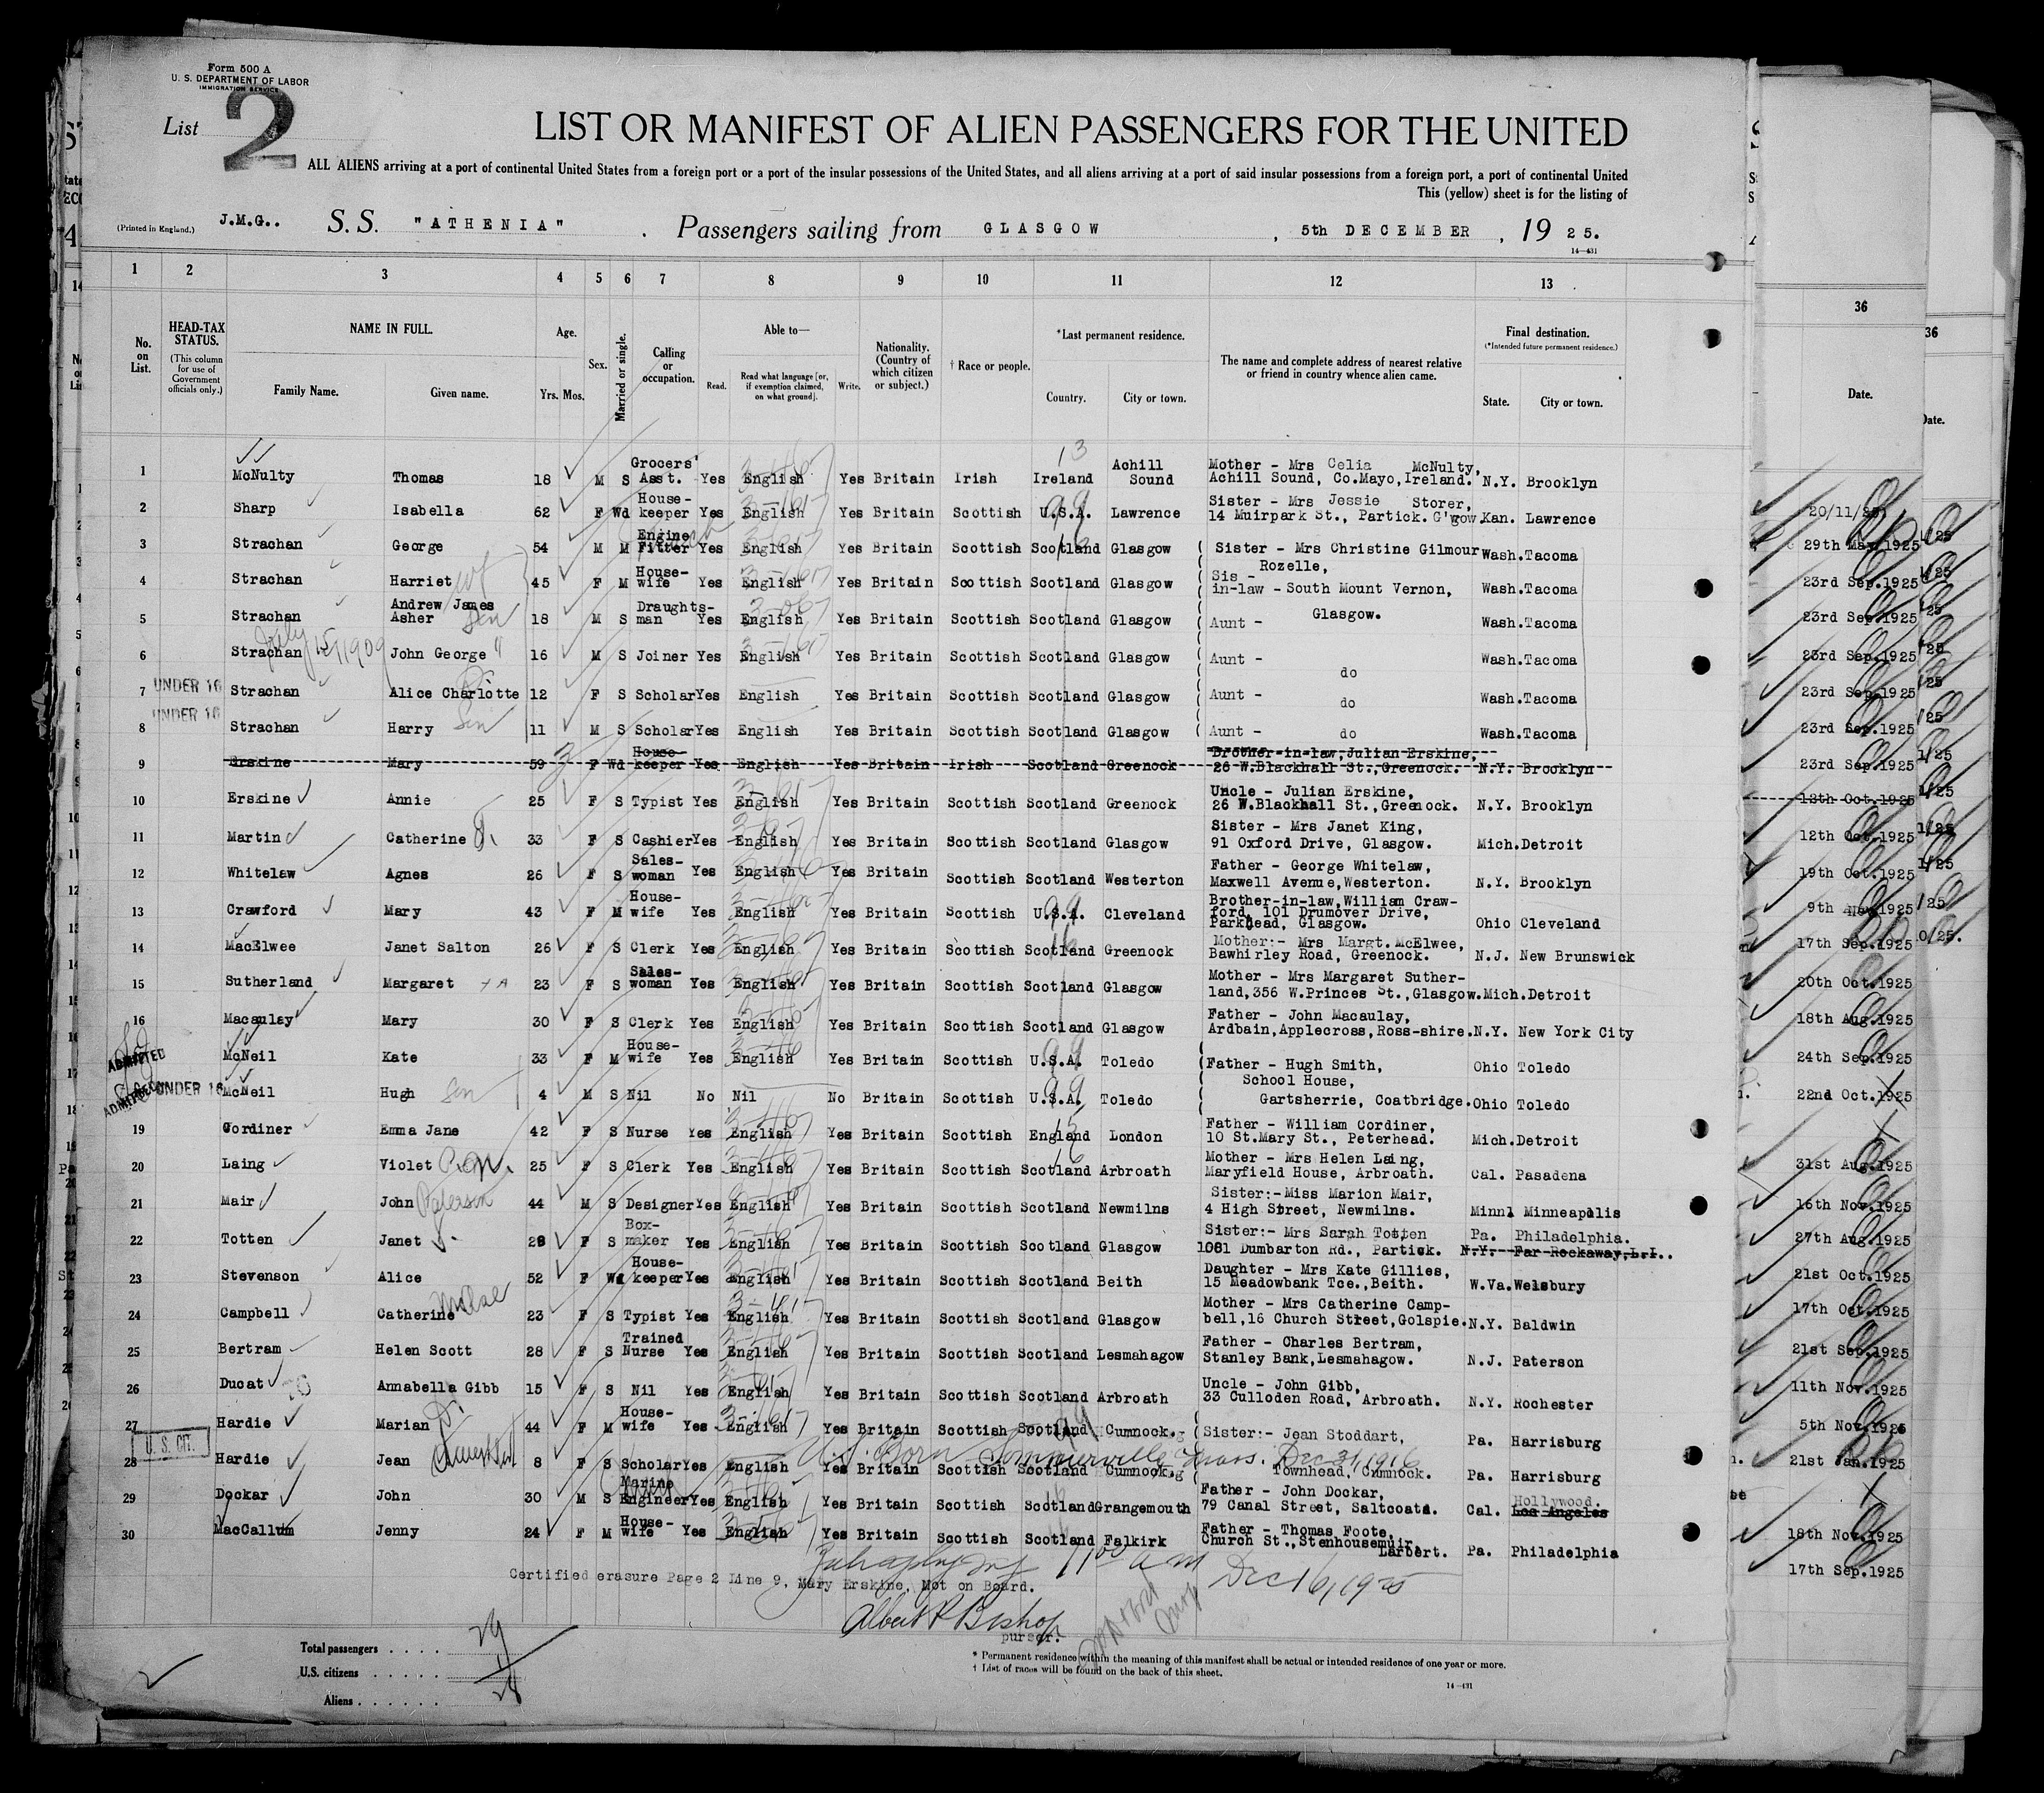 Form 500 A
U. S. DEPARTMENT OF LABOR
IMMIGRATION SERVICE
List 2
LIST OR MANIFEST OF ALIEN PASSENGERS FOR THE UNITED
ALL ALIENS arriving at a port of continental United States from a foreign port or a port of the insular possessions of the United States, and all aliens arriving at a port of said insular possessions from a foreign port, a port of continental United
This (yellow) sheet is for the listing of
(Printed in England.) J.M.G.. S. S. "ATHENIA" . Passengers sailing from GLASGOW , 5th DECEMBER , 19 25.
14-431
1 2 3 4 5 6 7 8 9 10 11 12 13 36
No. on List. HEAD-TAX STATUS. (This column for use of Government officials only.) NAME IN FULL. Family Name. Given name. Age. Yrs. Mos. Sex. Married or single. Calling or occupation. Able to— Read. Read what language [or, if exemption claimed, on what ground]. Write. Nationality. (Country of which citizen or subject.) † Race or people. *Last permanent residence. Country. City or town. The name and complete address of nearest relative or friend in country whence alien came. Final destination. (*Intended future permanent residence.) State. City or town. Date.
1 McNulty Thomas 18 M S Grocers' Asst. Yes English Yes Britain Irish Ireland Achill Sound Mother - Mrs Celia McNulty, Achill Sound, Co.Mayo,Ireland. N.Y. Brooklyn
2 Sharp Isabella 62 F Wd House-keeper Yes English Yes Britain Scottish U.S.A. Lawrence Sister - Mrs Jessie Storer, 14 Muirpark St., Partick. G'gow. Kan. Lawrence 20/11/25
3 Strachan George 54 M M Engine Fitter Yes English Yes Britain Scottish Scotland Glasgow Sister - Mrs Christine Gilmour Wash. Tacoma 29th May 1925
4 Strachan Harriet wf 45 F M House-wife Yes English Yes Britain Scottish Scotland Glasgow Rozelle, Sis - in-law - South Mount Vernon, Wash. Tacoma 23rd Sep.1925
5 Strachan Andrew James Asher Son 18 M S Draughts-man Yes English Yes Britain Scottish Scotland Glasgow Aunt - Glasgow. Wash. Tacoma 23rd Sep.1925
July 15, 1909
6 Strachan John George " 16 M S Joiner Yes English Yes Britain Scottish Scotland Glasgow Aunt - do Wash. Tacoma 23rd Sep.1925
UNDER 16
7 Strachan Alice Charlotte 12 F S Scholar Yes English Yes Britain Scottish Scotland Glasgow Aunt - do Wash. Tacoma 23rd Sep.1925
UNDER 16
8 Strachan Harry Son 11 M S Scholar Yes English Yes Britain Scottish Scotland Glasgow Aunt - do Wash. Tacoma 23rd Sep.1925
9 Erskine Mary 59 F Wd House-keeper Yes English Yes Britain Irish Scotland Greenock Brother-in-law, Julian Erskine, 26 W.Blackhall St.,Greenock. N.Y. Brooklyn 23rd Sep.1925
10 Erskine Annie 25 F S Typist Yes English Yes Britain Scottish Scotland Greenock Uncle - Julian Erskine, 26 W.Blackhall St.,Greenock. N.Y. Brooklyn 12th Oct.1925
11 Martin Catherine 33 F S Cashier Yes English Yes Britain Scottish Scotland Glasgow Sister - Mrs Janet King, 91 Oxford Drive, Glasgow. Mich. Detroit 12th Oct.1925
12 Whitelaw Agnes 26 F S Sales-woman Yes English Yes Britain Scottish Scotland Westerton Father - George Whitelaw, Maxwell Avenue,Westerton. N.Y. Brooklyn 19th Oct.1925
13 Crawford Mary 43 F M House-wife Yes English Yes Britain Scottish U.S.A. Cleveland Brother-in-law,William Craw-ford, 101 Drumover Drive, Parkhead, Glasgow. Ohio Cleveland 9th Nov1925
14 MacElwee Janet Salton 26 F S Clerk Yes English Yes Britain Scottish Scotland Greenock Mother:- Mrs Margt. McElwee, Bawhirley Road, Greenock. N.J. New Brunswick 17th Sep.1925
15 Sutherland Margaret 23 F S Sales-woman Yes English Yes Britain Scottish Scotland Glasgow Mother - Mrs Margaret Suther-land,356 W.Princes St.,Glasgow. Mich. Detroit 20th Oct.1925
16 Macaulay Mary 30 F S Clerk Yes English Yes Britain Scottish Scotland Glasgow Father - John Macaulay, Ardbain,Applecross,Ross-shire. N.Y. New York City 18th Aug.1925
ADMITTED
McNeil Kate 33 F M House-wife Yes English Yes Britain Scottish U.S.A. Toledo Father - Hugh Smith, School House, Ohio Toledo 24th Sep.1925
ADMITTED UNDER 16
McNeil Hugh Son 4 M S Nil No Nil No Britain Scottish U.S.A. Toledo Gartsherrie, Coatbridge. Ohio Toledo 22nd Oct.1925
19 Cordiner Emma Jane 42 F S Nurse Yes English Yes Britain Scottish England London Father - William Cordiner, 10 St.Mary St., Peterhead. Mich. Detroit
20 Laing Violet 25 F S Clerk Yes English Yes Britain Scottish Scotland Arbroath Mother - Mrs Helen Laing, Maryfield House, Arbroath. Cal. Pasadena 31st Aug.1925
21 Mair John Paterson 44 M S Designer Yes English Yes Britain Scottish Scotland Newmilns Sister:-Miss Marion Mair, 4 High Street, Newmilns. Minn. Minneapolis 16th Nov.1925
22 Totten Janet 28 F S Box-maker Yes English Yes Britain Scottish Scotland Glasgow Sister:- Mrs Sarah Totten 1081 Dumbarton Rd., Partick. Pa. Philadelphia. N.Y. Far Rockaway,L.I.. 27th Aug.1925
23 Stevenson Alice 52 F Wd House-keeper Yes English Yes Britain Scottish Scotland Beith Daughter - Mrs Kate Gillies, 15 Meadowbank Tce.,Beith. W.Va. Welsbury 21st Oct.1925
24 Campbell Catherine 23 F S Typist Yes English Yes Britain Scottish Scotland Glasgow Mother - Mrs Catherine Camp-bell,16 Church Street,Golspie. N.Y. Baldwin 17th Oct.1925
25 Bertram Helen Scott 28 F S Trained Nurse Yes English Yes Britain Scottish Scotland Lesmahagow Father - Charles Bertram, Stanley Bank,Lesmahagow. N.J. Paterson 21st Sep.1925
26 Ducat Annabella Gibb 15 F S Nil Yes English Yes Britain Scottish Scotland Arbroath Uncle - John Gibb, 33 Culloden Road, Arbroath. N.Y. Rochester 11th Nov.1925
27 Hardie Marian 44 F M House-wife Yes English Yes Britain Scottish Scotland Cumnock. Sister:- Jean Stoddart, Pa. Harrisburg 5th Nov.1925
U. S. CIT. U.S. Born Sommerville Mass. Dec 31, 1916
28 Hardie Jean Daughter 8 F S Scholar Yes English Yes Britain Scottish Scotland Cumnock, Townhead, Cumnock. Pa. Harrisburg 21st Jan.1925
29 Dockar John 30 M S Marine Engineer Yes English Yes Britain Scottish Scotland Grangemouth Father - John Dockar, 79 Canal Street, Saltcoats. Cal. Hollywood. Los Angeles 18th Nov.1925
30 MacCallum Jenny 24 F M House-wife Yes English Yes Britain Scottish Scotland Falkirk Father - Thomas Foote, Church St.,Stenhousemuir, Larbert. Pa. Philadelphia 17th Sep.1925
11 00 a m Dec 16, 1925
Certified erasure Page 2 Line 9, Mary Erskine, Not on Board.
Albert R Bishop
purser.
Total passengers . . . . 29
U.S. citizens . . . . . 1
Aliens . . . . . . 28
* Permanent residence within the meaning of this manifest shall be actual or intended residence of one year or more.
† List of races will be found on the back of this sheet.
14-431